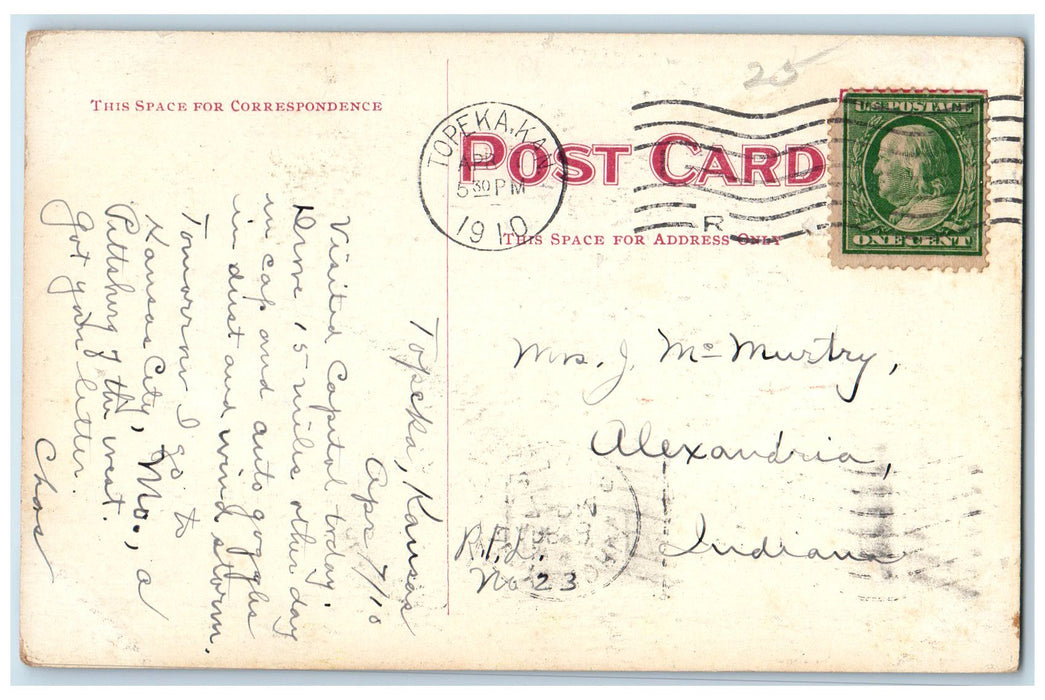 THIS SPACE FOR CORRESPONDENCE
Topeka, Kansas
Apr 7/10
Visited Capitol today.
Drove 15 miles other day
in cap and auto goggles
in dust and wind storm.
Tomorrow I go to
Kansas City, Mo., a
Pittsburg of the west.
Got your letter.
Chas
POST CARD
THIS SPACE FOR ADDRESS ONLY
TOPEKA, KAN.
APR
5 30 PM
1910
R
25
U.S. POSTAGE
ONE CENT
Mrs. J. Mc Murtry,
Alexandria,
Indiana
R.F.D.
No 23